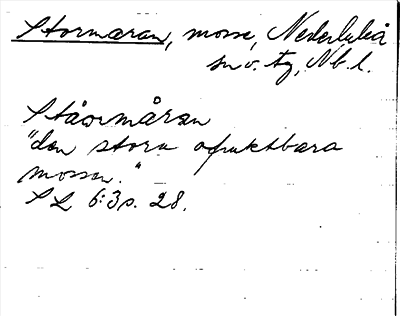 Stormaran, mosse, Nederluleå
sn v. tg, Nb. l.
Ståormåran
"den stora ofruktbara
mossen."
SL 6:3 s. 28.